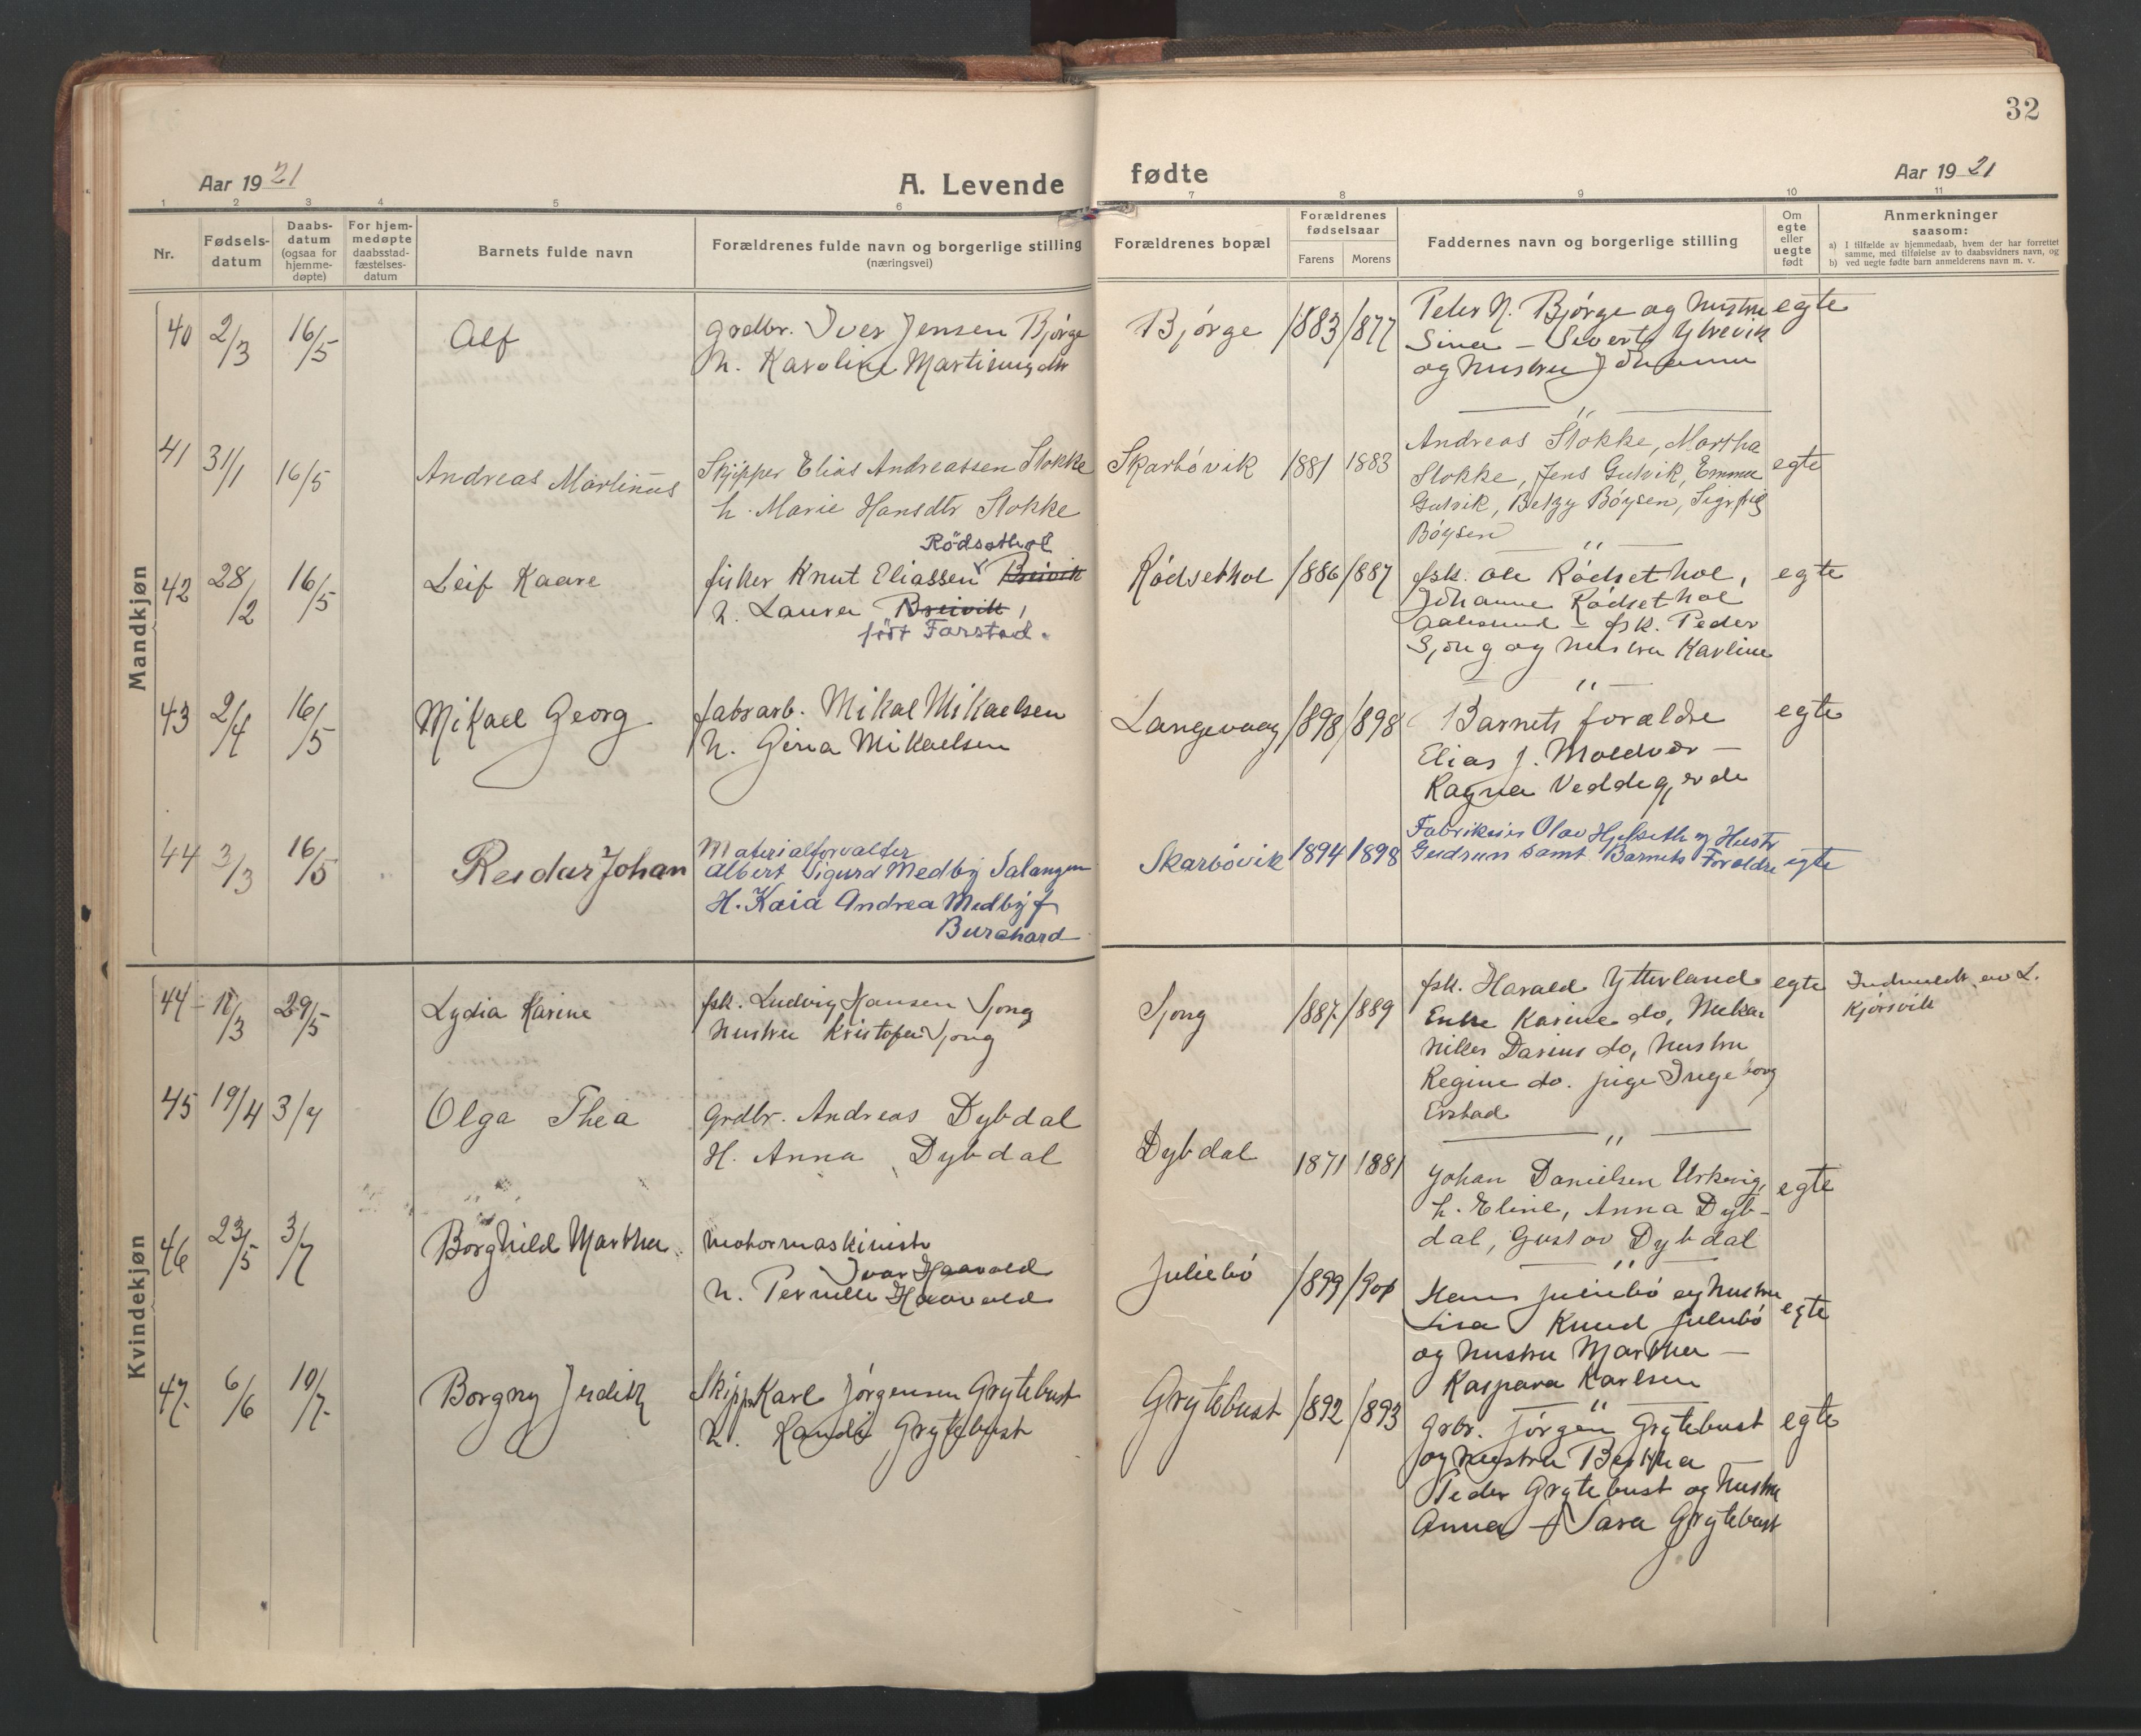 32
Aar 1921
A. Levende fødte
Aar 1921
1 2 3 4 5 6 7 8 9 10 11
Nr.
Fødsels-
datum
Daabs-
datum
(ogsaa for
hjemme-
døpte)
For hjem-
medøpte
daabsstad-
fæstelses-
datum
Barnets fulde navn
Forældrenes fulde navn og borgerlige stilling
(næringsvei)
Forældrenes bopæl
Forældrenes
fødselsaar
Farens Morens
Faddernes navn og borgerlige stilling
Om
egte
eller
uegte
født
Anmerkninger
saasom:
a) I tilfælde av hjemmedaab, hvem der har forrettet
samme, med tilføielse av to daabsvidners navn, og
b) ved uegte fødte barn anmelderens navn m. v.
Mandkjøn
40 2/3 16/5 Alf
Grdbr. Iver Jensen Bjørge
h. Karoline Martinusdtr
Bjørge 1883 1877
Peter N. Bjørge og hustru
Sina – Sivert Ytrevik
og hustru Johanne
egte
41 31/1 16/5 Andreas Martinus
Skipper Elias Andreassen Stokke
h. Marie Hansdtr Stokke
Skarbøvik 1881 1883
Andreas Stokke, Martha
Stokke, Jens Gulvik, Emma
Gulvik, Betzy Böysen, Sigrfrid
Böysen
egte
42 28/2 16/5 Leif Kaare
Rödsethol
fisker Knut Eliassen Breivik
h. Laura Breivik,
født Farstad.
Rødsethol 1886 1887
fsk. Ole Rødsethol,
Johanne Rødsethol
Aalesund – fsk. Peder
Sjong og hustru Karline
egte
43 2/4 16/5 Mikael Georg
fabrarb. Mikal Mikaelsen
h. Gina Mikaelsen
Langevaag 1898 1898
Barnets forældre
Elias J. Moldvær –
Ragna Veddegjerde
egte
44 3/3 16/5 Reidar Johan
Materialforvalter
Albert Sigurd Medby Salangen
H. Kaia Andrea Medby f
Burchard
Skarbøvik 1894 1898
Fabrikeier Olav Hjelseth og Hustr
Gudrun samt Barnets Forældre
egte
Kvindekjøn
44 11/3 29/5 Lydia Karine
fsk. Ludvig Hansen Sjong
hustru Kristofa Sjong
Sjong 1887 1889
fsk. Harald Ytterland
Enke Karine do,
Nikls Darius do, hustru
Regine do. pige Ingeborg
Erstad
egte
Indmeldt av L.
Kjørsvik
45 19/4 3/7 Olga Thea
Grdbr. Andreas Dybdal
H. Anna Dybdal
Dybdal 1871 1881
Johan Danielsen Urkevig,
h. Eline, Anna Dyb-
dal, Gustav Dybdal
egte
46 23/5 3/7 Borghild Martha
motormaskinist
Ivar Haavold
h. Pernille Haavold
Juliebø 1899 1901
Hans Juliebø og hustru
Lisa Knud Juliebø
og hustru Martha –
Kaspara Karlsen
egte
47. 6/6 10/7 Borgny Judith
Skipp. Karl Jørgensen Grytebust
h. Randi Grytebust
Grytebust 1892 1893
Grbr. Jørgen Grytebust
og hustru Bertha
Peder Grytebust og hustru
Anna – Sara Grytebust
egte